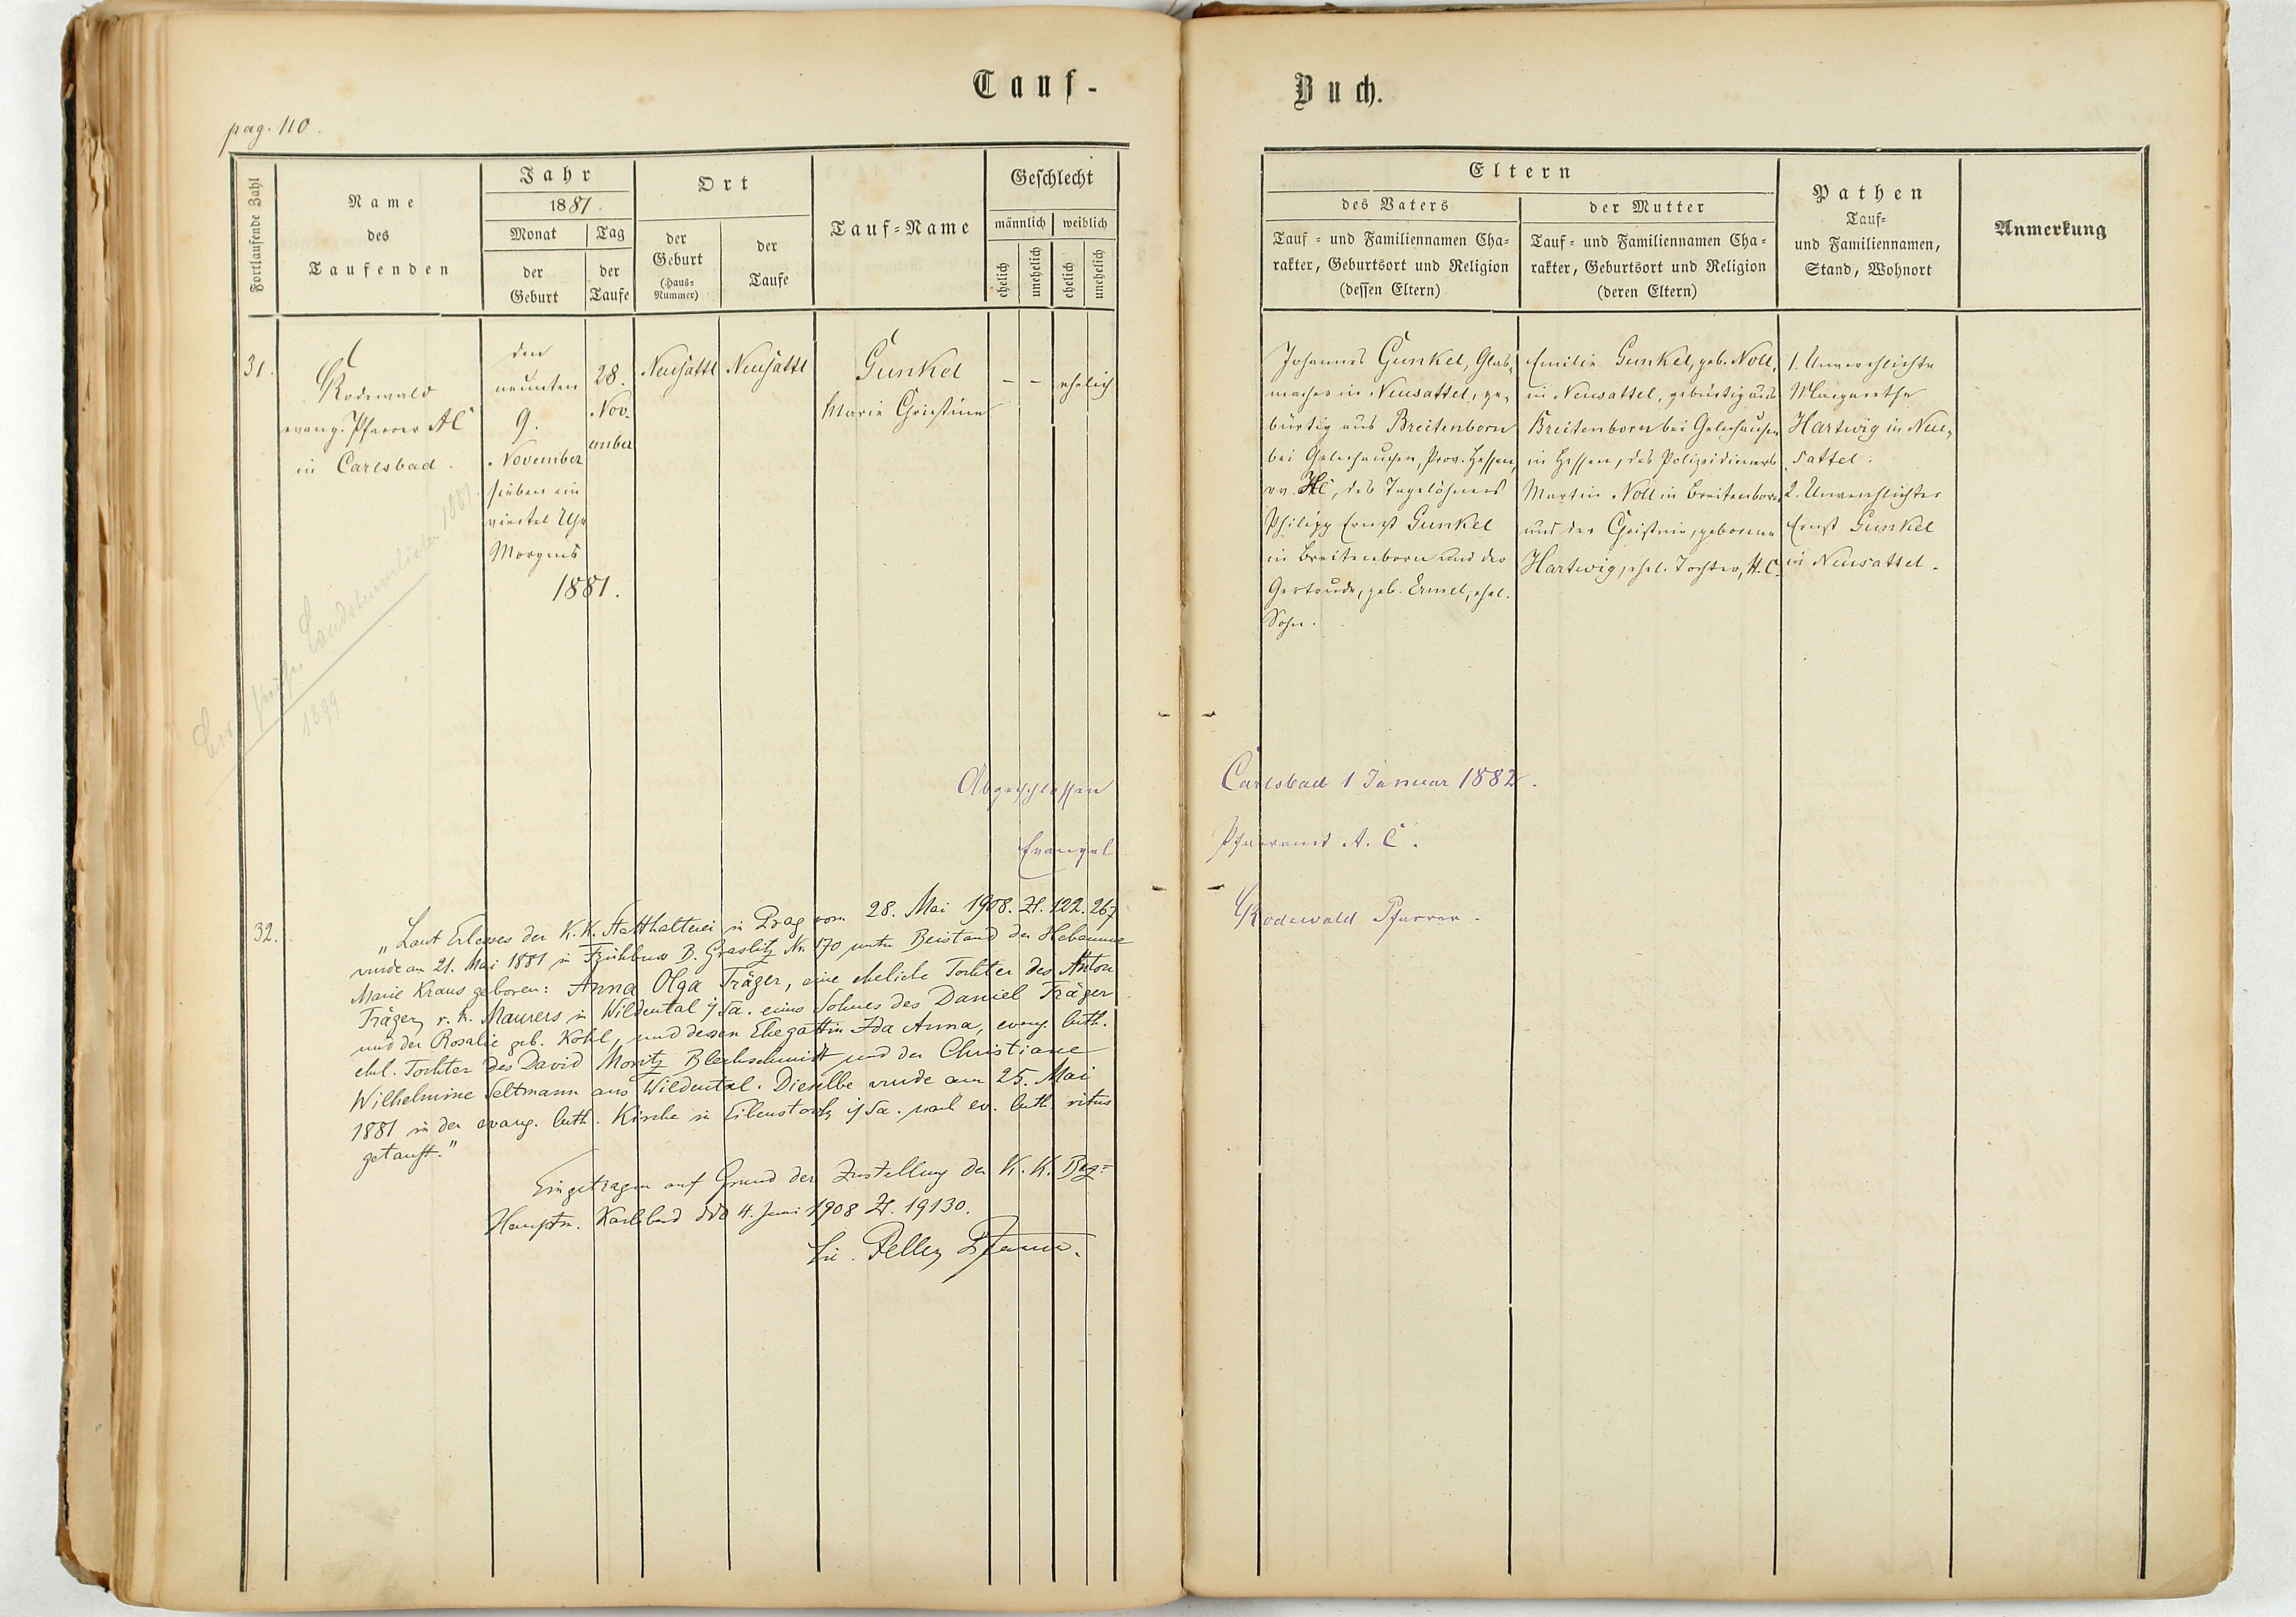 Tauf-
Buch.
pag. 110.
Fortlaufende Zahl
Name
des
Taufenden
Jahr
1881.
Monat
Tag
der
Geburt
der
Taufe
Ort
der
Geburt
(Haus-
Nummer)
der
Taufe
Tauf-Name
Geschlecht
männlich
weiblich
ehelich
unehelich
ehelich
unehelich
Eltern
des Vaters
Tauf- und Familiennamen Cha-
rakter, Geburtsort und Religion
(dessen Eltern)
der Mutter
Tauf- und Familiennamen Cha-
rakter, Geburtsort und Religion
(deren Eltern)
Pathen
Tauf-
und Familiennamen,
Stand, Wohnort
Anmerkung
31.
Rodewald
evang. Pfarrer AC
in Carlsbad.
den
neunten
9.
November
sieben ein
viertel Uhr
Morgens
1881.
28.
Nov
ember
Neusattl
Neusattl
Gunkel
Maria Christine
– –
ehelich
Johannes Gunkel, Glas-
macher in Neusattel, ge-
bürtig aus Breitenborn
bei Gelnhausen, Prov. Hessen,
ev. HC, des Tagelöhners
Philipp Ernst Gunkel
in Breitenborn und der
Gertrude, geb. Ermel, ehel.
Sohn.
Emilie Gunkel, geb. Noll,
in Neusattel, gebürtig aus
Breitenborn bei Gelnhausen
in Hessen, des Polizeidieners
Martin Noll in Breitenborn
und der Christine, geborene
Hartwig, ehel. Tochter, H.C.
1. Unverehlichte
Margarethe
Hartwig in Neu-
sattel.
2. Unverehlichter
Ernst Gunkel
in Neusattel.
Landsturmlisten 1881
1899
Abgeschlossen Carlsbad 1 Januar 1882.
Evangel Pfarramt A. C.
Rodewald Pfarrer.
32.
„Laut Erlasses der K. K. Statthalterei in Prag vom 28. Mai 1908. Zl. 122.267
wurde am 21. Mai 1881 in Frühbuss B. Graslitz Nr. 170 unter Beistand der Hebamme
Marie Kraus geboren: Anna Olga Träger, eine eheliche Tochter des Anton
Träger, r. k. Maurers in Wildental i/Sa. eines Sohnes des Daniel Träger
und der Rosalie geb. Kohl, und dessen Ehegattin Ida Anna, evang. luth.
ehel. Tochter des David Moritz Blechschmidt und der Christiane
Wilhelmine Seltmann aus Wildental. Dieselbe wurde am 25. Mai
1881 in der evang. luth. Kirche in Eibenstock i/Sa. nach ev. luth. ritus
getauft."
Eingetragen auf Grund der Zustellung der K. K. Bez=
Hauptm. Karlsbad ddo 4. Juni 1908 Zl. 19130.
Lic. Pfarrer.